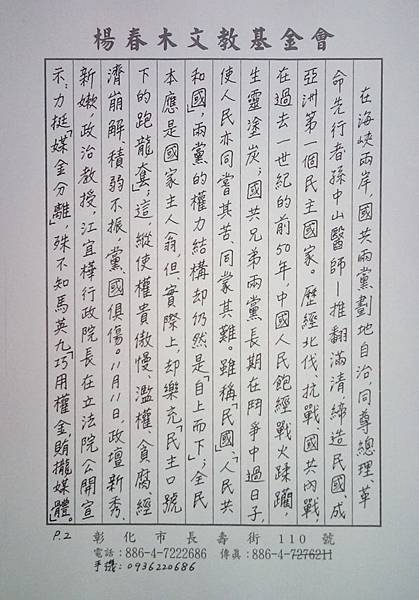 楊春木文教基金會
在海峽兩岸,國共兩黨劃地自治,同尊總理革
命先行者孫中山醫師—推翻滿清締造民國,成
亞洲第一個民主國家。歷經北伐、抗戰、國共內戰,
在過去一世紀的前50年,中國人民飽經戰火蹂躪,
生靈塗炭;國共兄弟兩黨長期在鬥爭中過日子,
使人民亦同嘗其苦、同蒙其難。雖稱「民國」、「人民共
和國」,兩黨的權力結構却仍然是「自上而下」;全民
本應是國家主人翁,但實際上,却樂充「民主口號
下的跑龍套」;這縱使權貴傲慢、濫權、貪腐經
濟崩解積弱不振,黨國俱傷。11月11日,政壇新秀、
新嫩,政治教授,江宜樺行政院長在立法院公開宣
示:力挺「媒金分離」,殊不知馬英九「巧用權金賄攏媒體」。
P.2
彰化市長壽街110號
電話:886-4-7222686 傳真:886-4-7276211
手機:0936220686